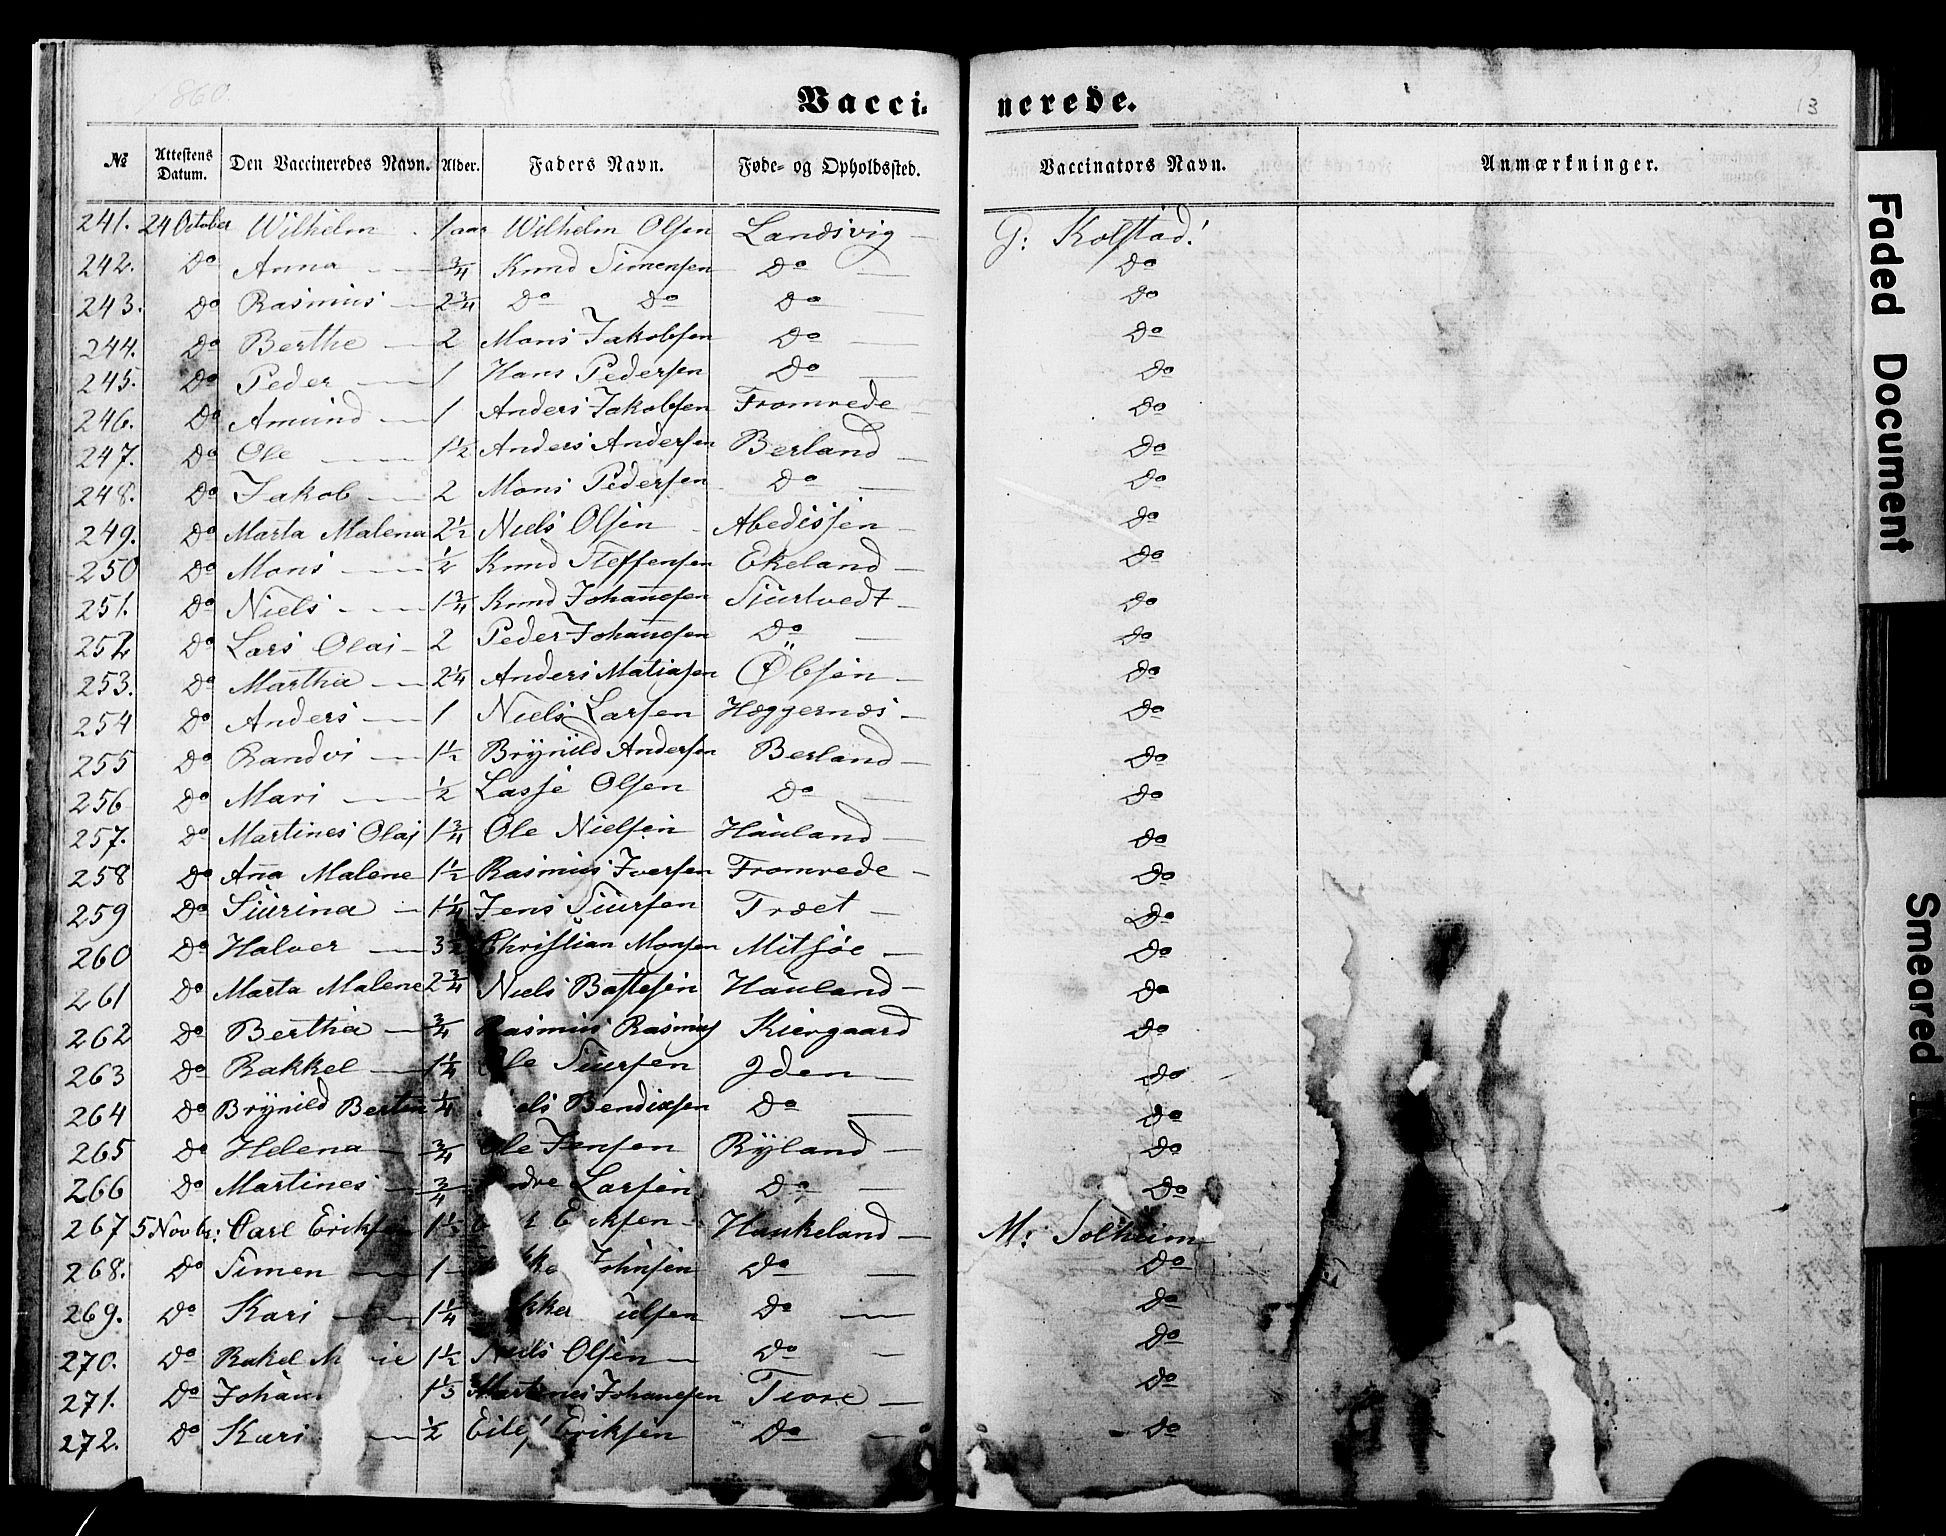 1860.
Vacci-nerede.
13
№ Attestens Datum. Den Vaccineredes Navn. Alder. Faders Navn. Føde- og Opholdssted. Vaccinators Navn. Anmærkninger.
241. 24 October Wilhelm 1 aar Wilhelm Olsen Landsvig G: Kolstad.
242. Do Anna 3/4 Knud Simensen Do Do
243. Do Rasmus 2 3/4 Do Do Do Do
244. Do Berthe 2 Mons Jakobsen Do Do
245. Do Peder 1 Hans Pedersen Do Do
246. Do Amund 1 Anders Jakobsen Fromrede Do
247. Do Ole 1 1/2 Anders Andersen Berland Do
248. Do Jakob 2 Mons Pedersen Do Do
249. Do Marta Malena 2 1/2 Niels Olsen Abedissen Do
250 Do Mons 1/2 Knud Steffensen Ekeland Do
251. Do Niels 1 3/4 Knud Johanesen Siurtvedt Do
252 Do Lars Olai 2 Peder Johanesen Do Do
253. Do Martha 2 1/4 Anders Matiasen Øbsen Do
254 Do Anders 1 Niels Larsen Heggernæs Do
255 Do Randvi 1 1/2 Brynild Andersen Berland Do
256 Do Mari 1/2 Lasse Olsen Do Do
257. Do Martines Olai 1 3/4 Ole Nielsen Hauland Do
258 Do Ana Malene 1 1/2 Rasmus Iversen Fromrede Do
259 Do Siurina 1 1/4 Jens Siursen Træet Do
260 Do Halver 3 1/2 Christian Monsen Mitsøe Do
261 Do Marta Malene 2 3/4 Niels Bastesen Hauland Do
262 Do Bertha 3/4 Rasmus Rasmus Kiergaard Do
263 Do Rakkel 1 1/4 Ole Siursen Iden Do
264 Do Brynild Berten 1/4 Niels Bendixsen Do Do
265 Do Helena 3/4 Ole Jensen Ryland Do
266 Do Martines 3/4 Andre Larsen Do Do
267 5 Novbr: Carl Eriksen 1 1/3 Eriksen Haukeland M: Solheim
268. Do Simen 1 Johnsen Do Do
269. Do Kari 1 1/4 Do Do
270. Do Rakel 1 1/2 Niels Olsen Do Do
271. Do Johan 1 1/3 Martines Johanesen Tiore Do
272. Do Kari 1/2 Eilef Eriksen Do Do
Faded Document
Smeared